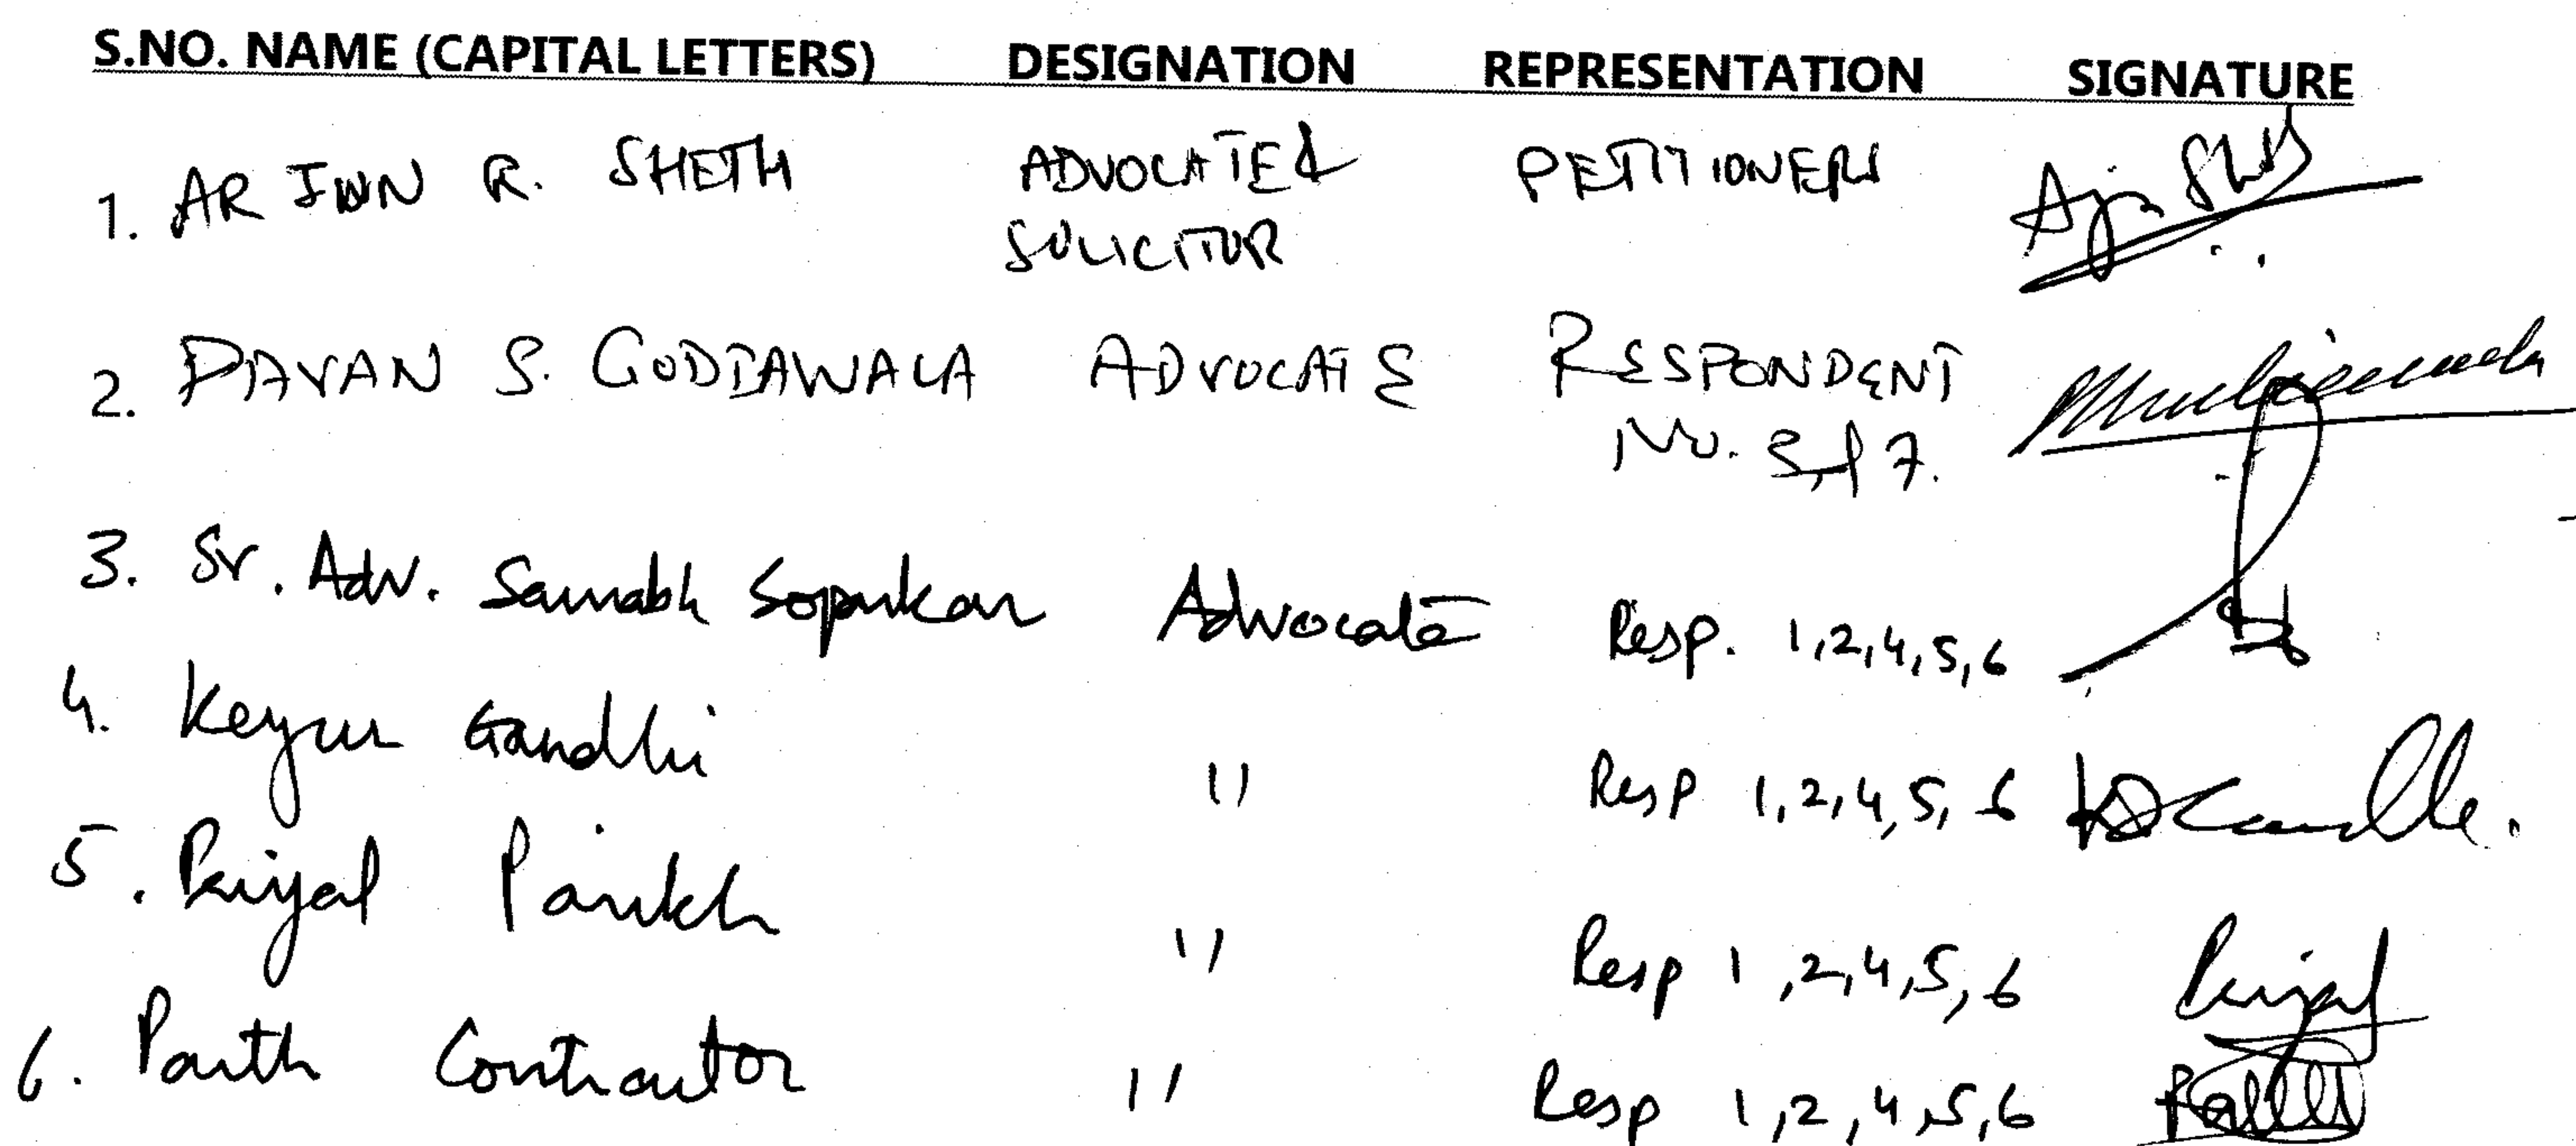 S.NO. NAME (CAPITAL LETTERS) DESIGNATION REPRESENTATION SIGNATURE
1. ARJUN R. SHETH ADVOCATE & PETITIONERS
SOLICITOR
2. PAVAN S. GODIAWALA ADVOCATE RESPONDENT
No. 3 & 7.
3. Sr. Adv. Saurabh Soparkar Advocate Resp. 1,2,4,5,6
4. Keyur Gandhi " Resp 1,2,4,5,6
5. Priyal Parikh " Resp 1,2,4,5,6 Priyal
6. Parth Contractor " Resp 1,2,4,5,6